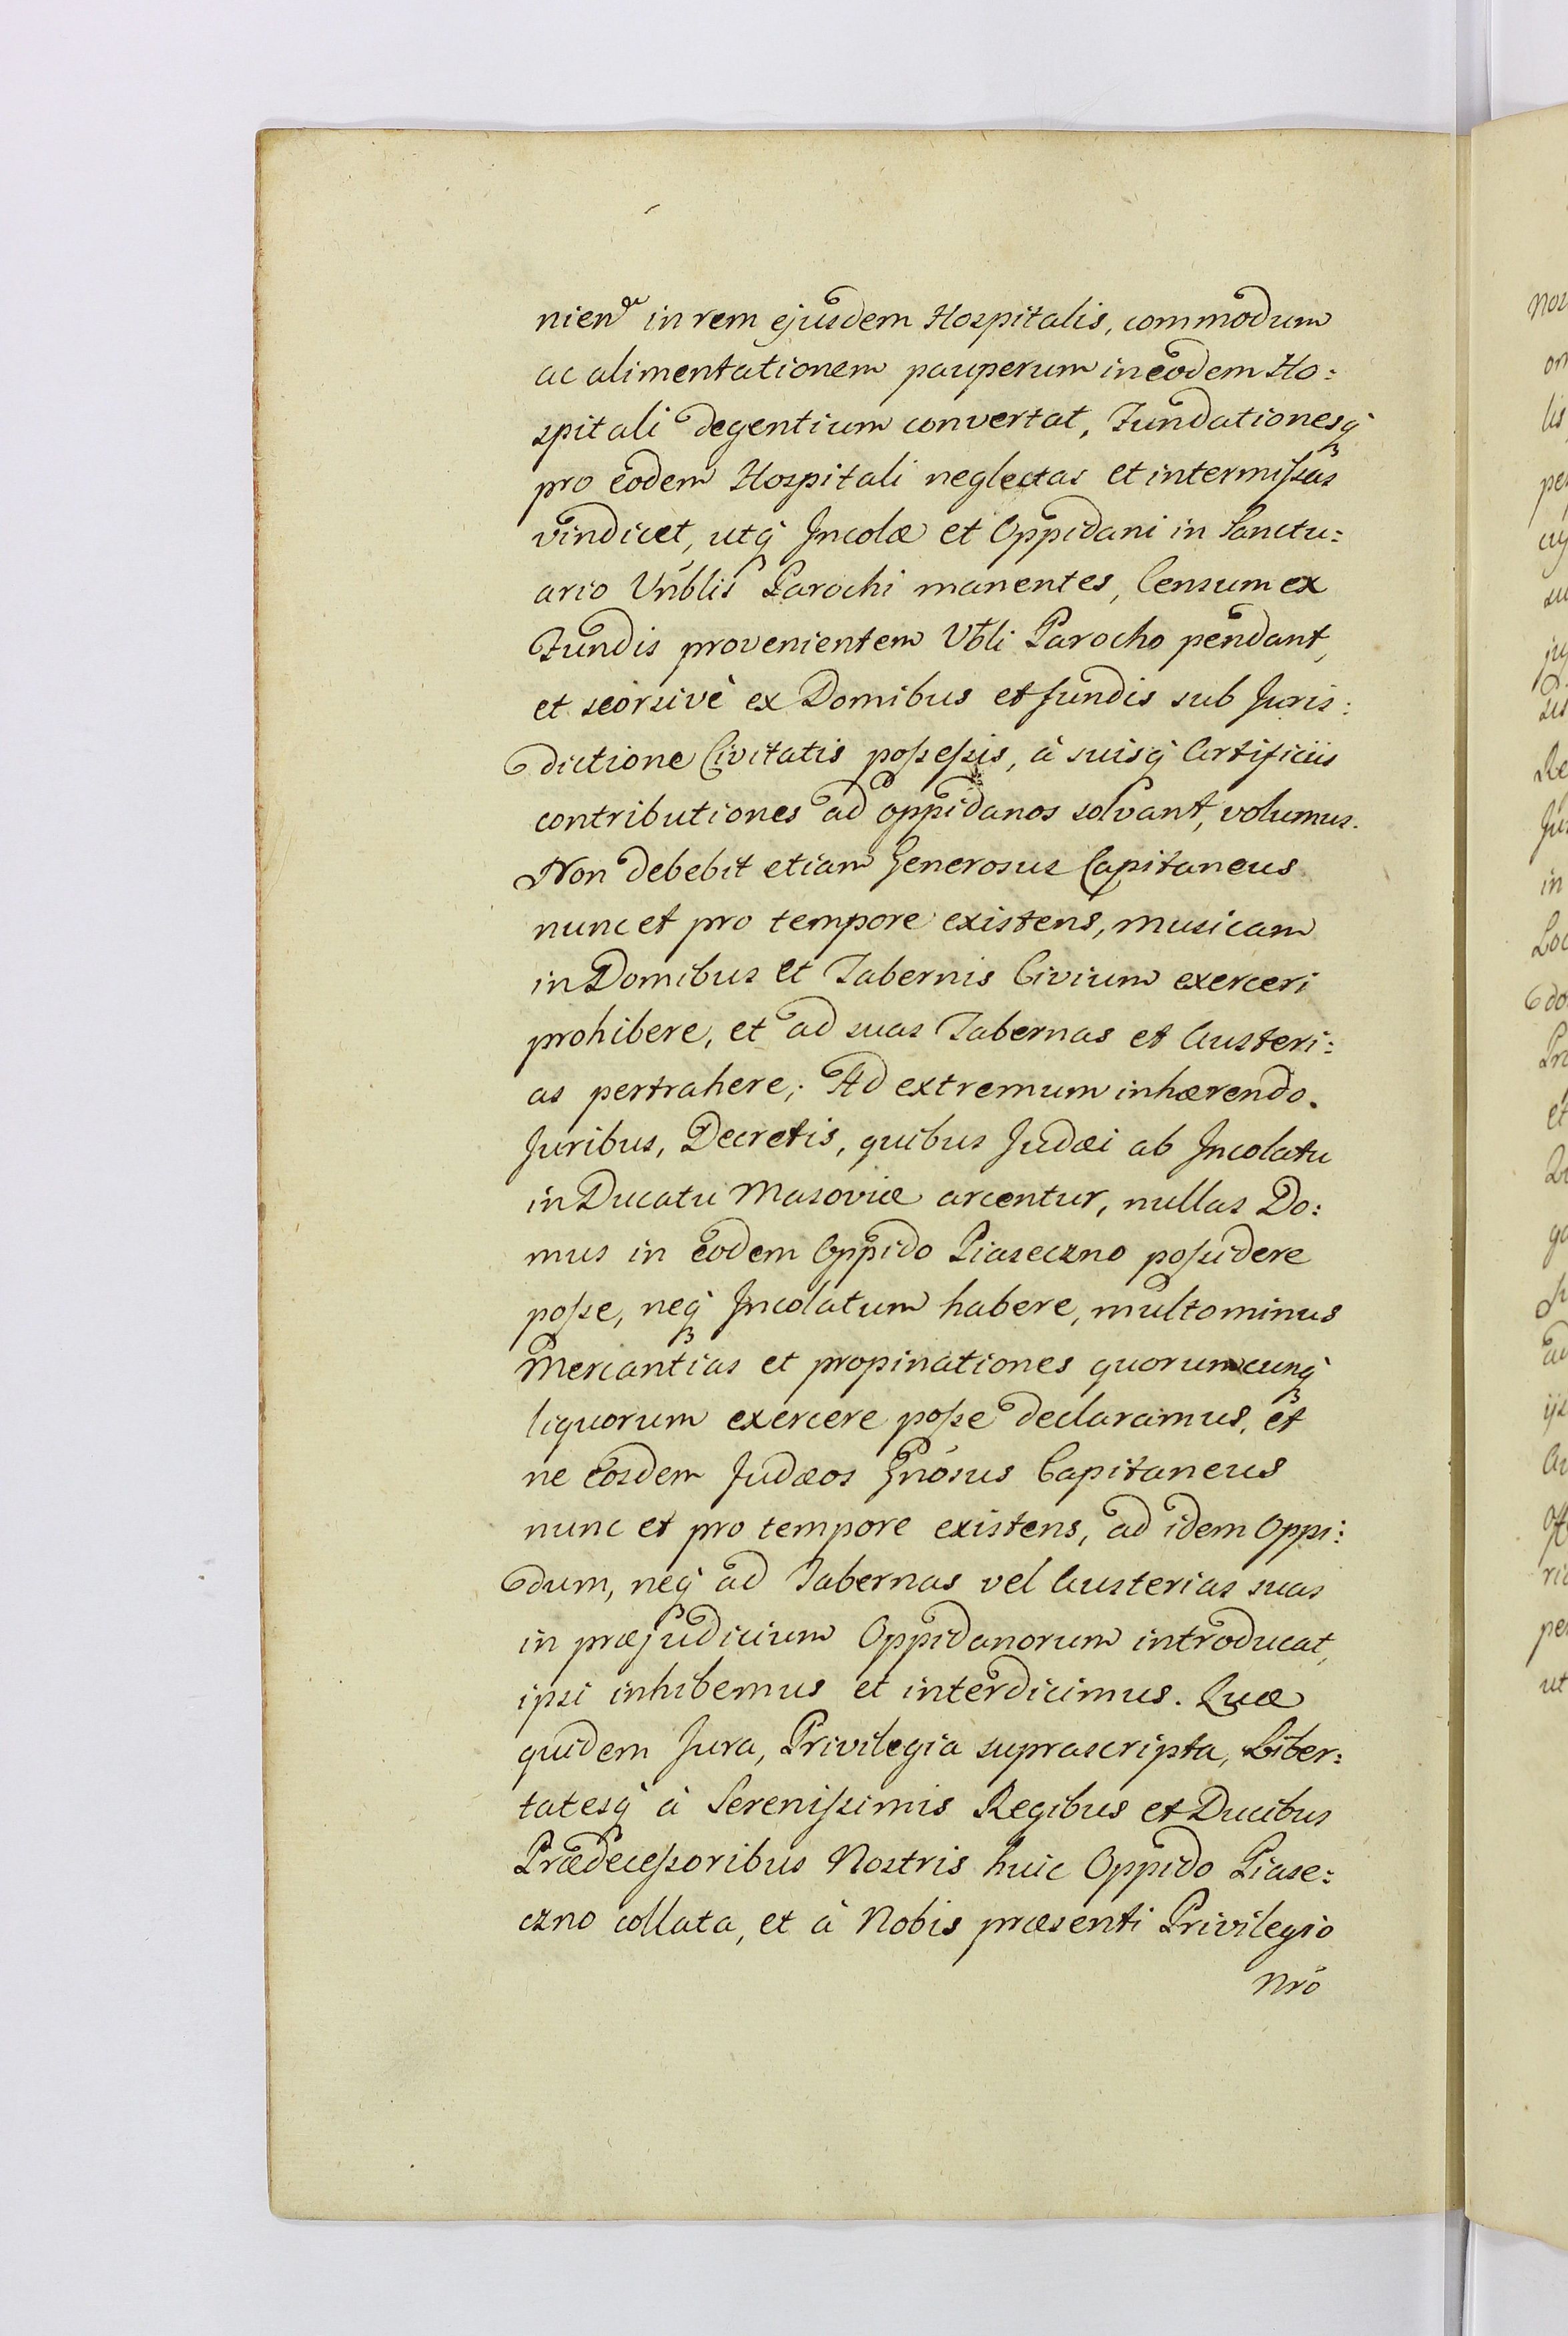 nien. in rem ejusdem Hospitalis, commodum
ac alimentationem pauperum in eodem Ho:
spitali degentium convertat, Fundationesq̃
pro eodem Hospitali neglectas et intermissas
vindicet, utq̃ Incolæ et Oppidani in Sanctu:
ario Vnblis Parochi manentes, Censum ex
Fundis provenientem Vbli Parocho pendant,
et seorsivè ex Domibus et fundis sub Juris:
dictione Civitatis possessis, à suisq̃ Artificiis
contributiones ad oppidanos solvant, volumus.
Non debebit etiam Generosus Capitaneus
nunc et pro tempore existens, musicam
in Domibus et Tabernis Civium exerceri
prohibere, et ad suas Tabernas et Austeri:
as pertrahere; Ad extremum inhærendo.
Juribus, Decretis, quibus Judæi ab Incolatu
in Ducatu Masoviæ arcentur, nullas Do:
mus in eodem Oppido Piaseczno possidere
posse, neq̃ Incolatum habere, multominus
Mercantias et propinationes quorumcunq̃
liquorum exercere posse declaramus, et
ne eosdem Judæos Gnósus Capitaneus
nunc et pro tempore existens, ad idem Oppi:
dum, neq̃ ad Tabernas vel Austerias suas
in præjudicium Oppidanorum introducat,
ipsi inhibemus et interdicimus. Quæ
quidem Jura, Privilegia suprascripta, Liber:
tatesq̃ à Serenissimis Regibus et Ducibus
Prædecessoribus Nostris huic Oppido Piase:
czno collata, et à Nobis præsenti Privilegio
Nró